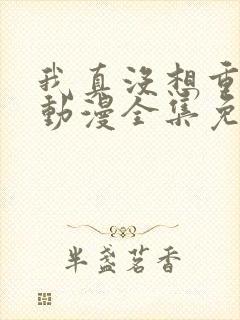 我真没想重
動漫全集免
半盏茗香